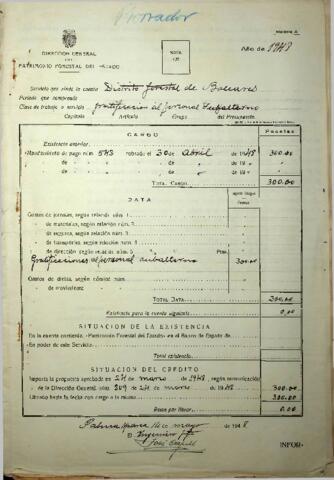 Borrador
MODELO A
DIRECCION GENERAL
DEL
PATRIMONIO FORESTAL DEL ESTADO
Año de 1948
Servicio que rinde la cuenta Distrito forestal de Baleares
Período que comprende
Clase de trabajo o servicio gratificación al personal subalterno
Capítulo Artículo Grupo del Presupuesto.
CARGO
Pesetas
Existencia anterior.
Mandamiento de pago núm. 543 cobrado el 30 de Abril de 1948 300.00
de de de 19
de de de 19
TOTAL CARGO. 300.00
DATA
Gastos de jornales, según relación núm. 1
de materiales, según relación núm. 2
de seguros, según relación núm. 3
de transportes, según relación núm. 4
de dirección según relación núm. 5
Gratificaciones al personal subalterno 300.00
Gastos de dietas, según nómina núm.
de movimiento
TOTAL DATA 300.00
Existencia para la cuenta siguiente 0,00
SITUACION DE LA EXISTENCIA
En la cuenta corriente «Patrimonio Forestal del Estado» en el Banco de España de
En poder de este Servicio
Total existencia.
SITUACION DEL CREDITO
Importa la propuesta aprobada en 24 de marzo de 1948, según comunicación
de la Dirección General 209 24 de marzo de 1948 300.00
Librado hasta la fecha con cargo a la misma 300.00
Resta por librar. 0.00
Palma 14 de mayo de 1948
El Ingeniero
INFOR